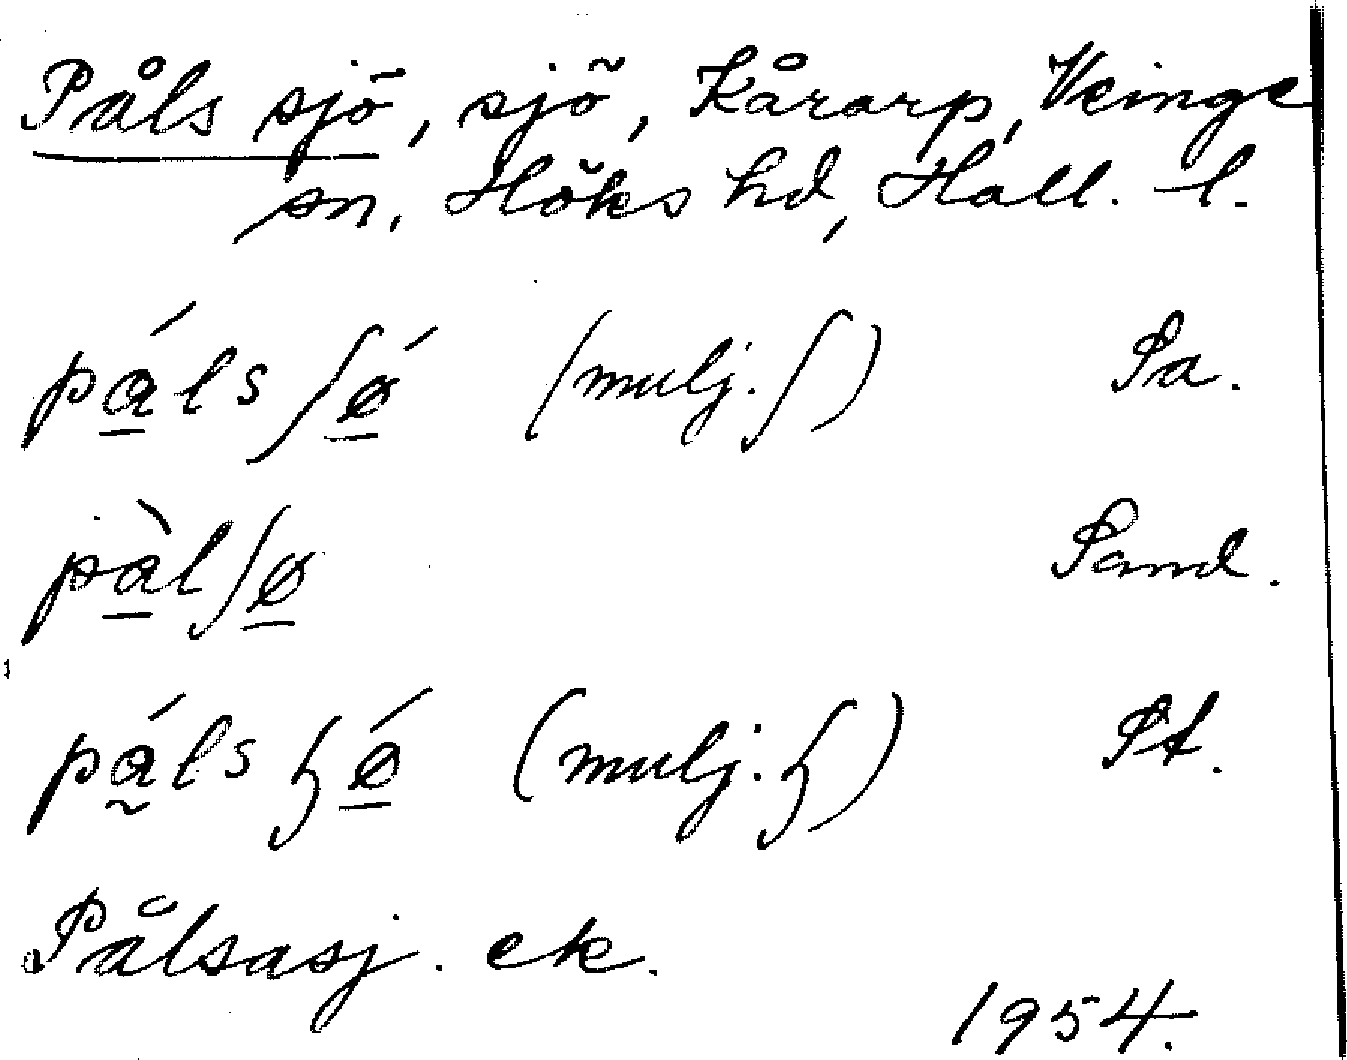 Påls sjö, sjö, Kårarp, Veinge
sn, Höks hd, Hall. l.
pá̱lsʃǿ̱ (mulj. ʃ) Pa.
pà̱lʃø̱ Sand.
pá̰lsɧǿ̱ (mulj. ɧ) Pt.
Pålsasj. ek.
1954.